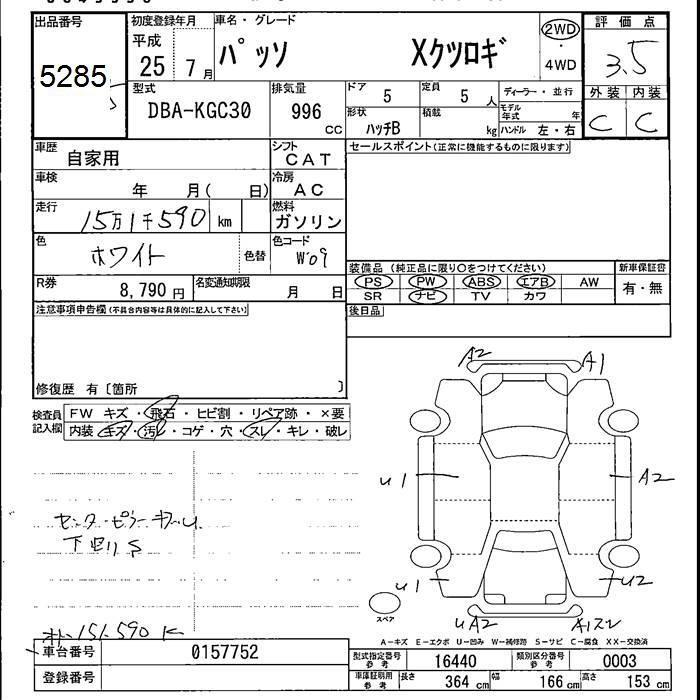 出品番号
5285
初度登録年月
平成
25 7月
車名・グレード
パッソ Xクツロギ
2WD
・
4WD
評価点
3.5
外装 内装
C C
型式
DBA-KGC30
排気量
996
cc
ドア
5
定員
5人
形状
ハッチB
積載
kg
ディーラー・並行
モデル年式 年
ハンドル 左・右
車歴
自家用
シフト
CAT
セールスポイント(正常に機能するものに限ります)
車検
年 月( 日)
冷房
AC
走行
15万1千590 km
燃料
ガソリン
色
ホワイト
色替
色コード
W09
R券
8,790 円
名変通知期限
月 日
装備品 (純正品に限り○をつけてください)
PS PW ABS エアB AW
SR ナビ TV カワ
新車保証書
有・無
後日品
注意事項申告欄(不具合内容等は具体的に記入して下さい)
修復歴 有〔箇所 〕
検査員
記入欄
FW キズ・飛石・ヒビ割・リペア跡・×要
内装 キズ・汚れ・コゲ・穴・スレ・キレ・破レ
A2 A1
U1
A2
U1
U2
UA2
スペア
A―キズ E―エクボ U―凹み W―補修跡 S―サビ C―腐食 XX―交換済
車台番号 0157752
登録番号
型式指定番号
参考
16440
類別区分番号
参考
0003
車庫証明用
参考
長さ 364 cm
幅 166 cm
高さ 153 cm